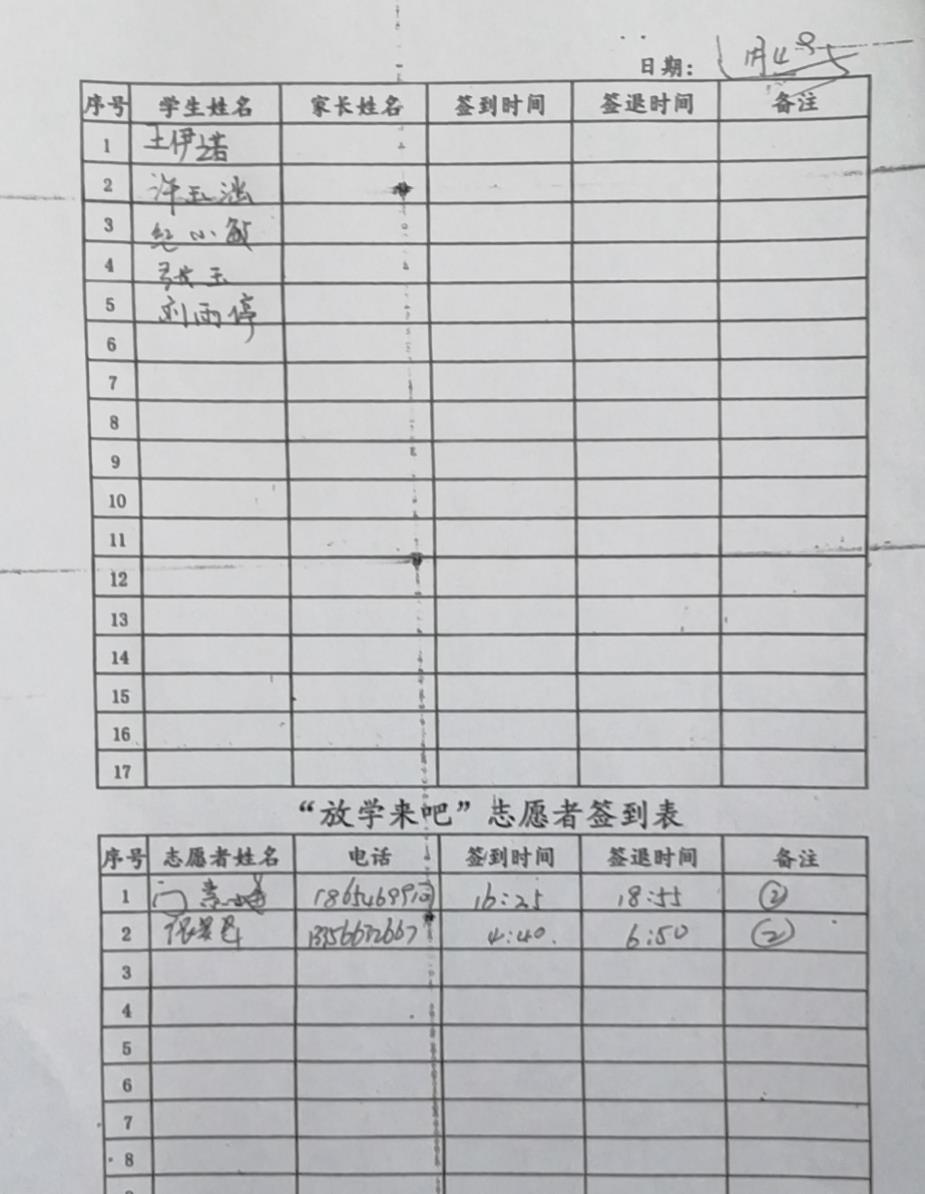 日期: 1月4号
序号 学生姓名 家长姓名 签到时间 签退时间 备注
1 王伊诺
2 许玉涵
3 纪小敏
4 张玉
5 刘雨停
6
7
8
9
10
11
12
13
14
15
16
17
“放学来吧”志愿者签到表
序号 志愿者姓名 电话 签到时间 签退时间 备注
1 16:25 18:55 ②
2 13356632667 4:40. 6:50 ②
3
4
5
6
7
8